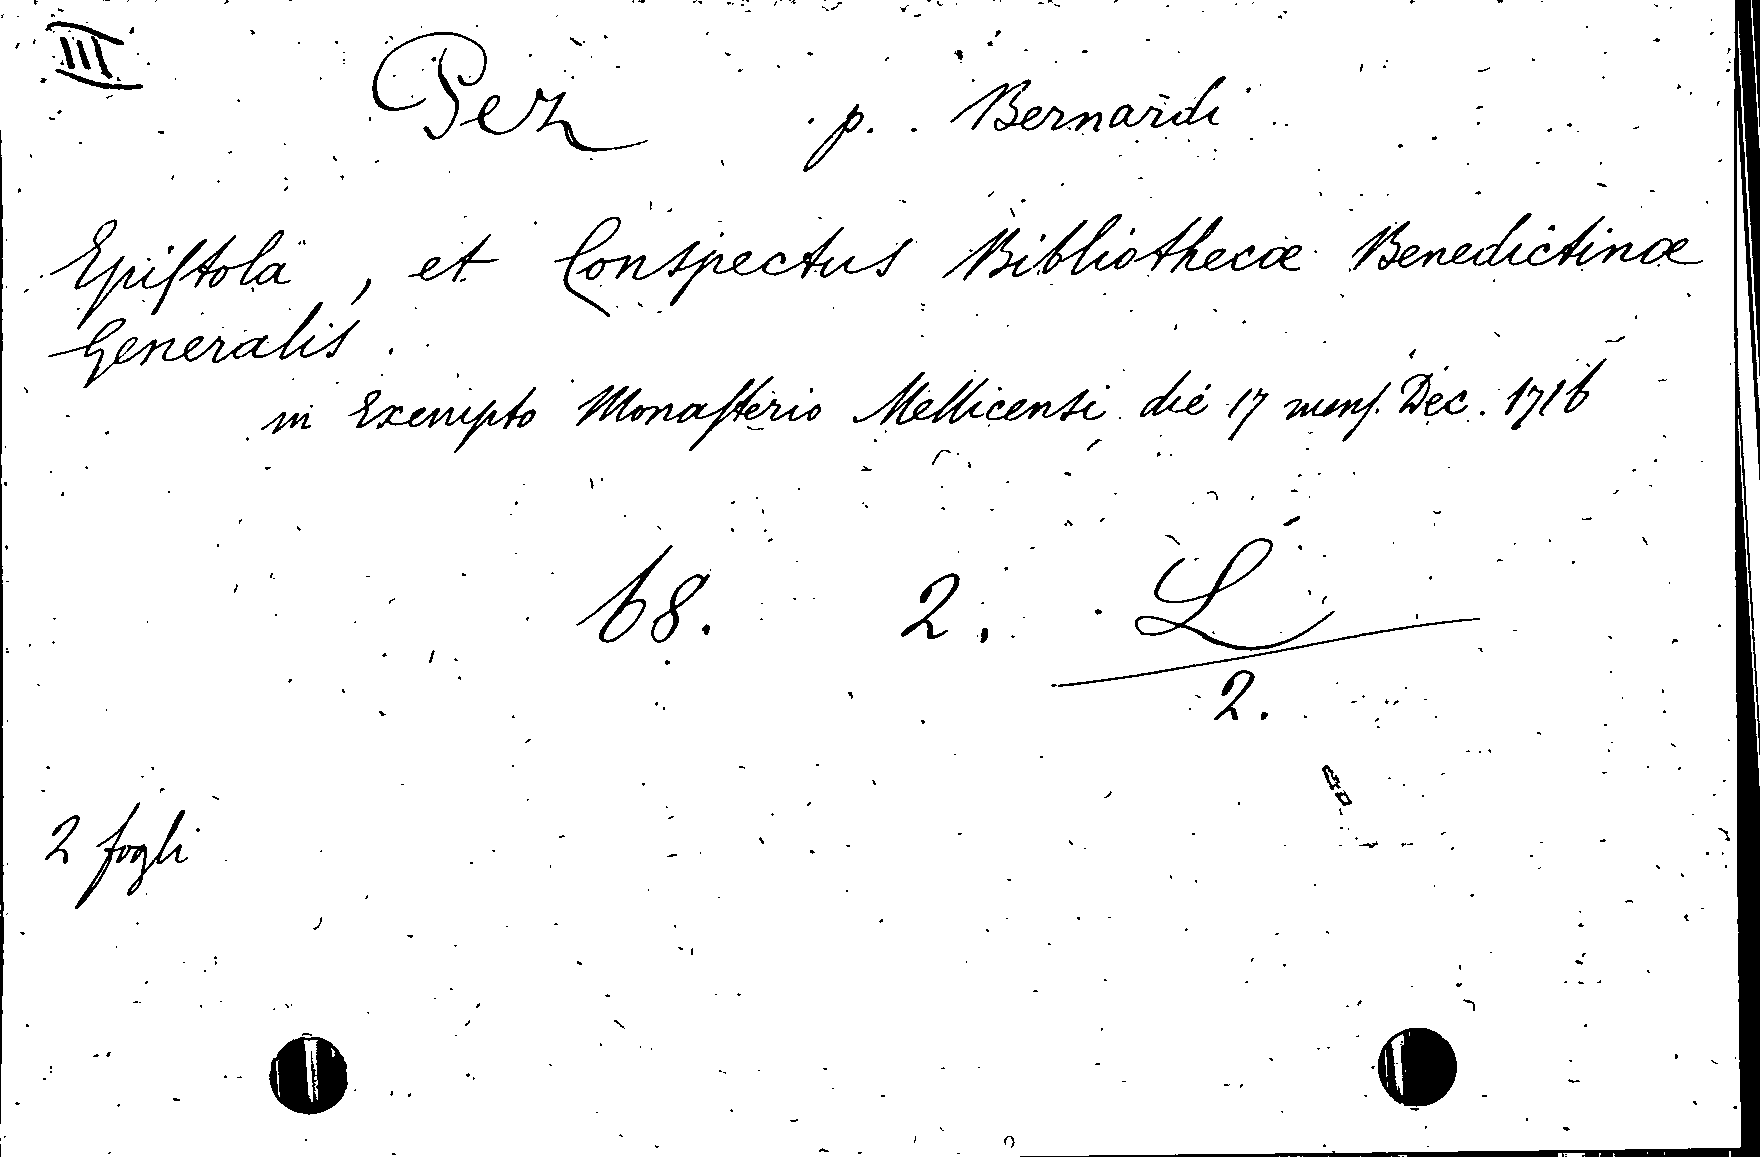 III
Pez p. Bernardi
Epiſtola, et Conspectus Bibliothecæ Benedictinæ
Generalis.
in Exempto Monaſterio Mellicensi die 17 menſ. Dec. 1716
68. 2. L
2.
2 fogli